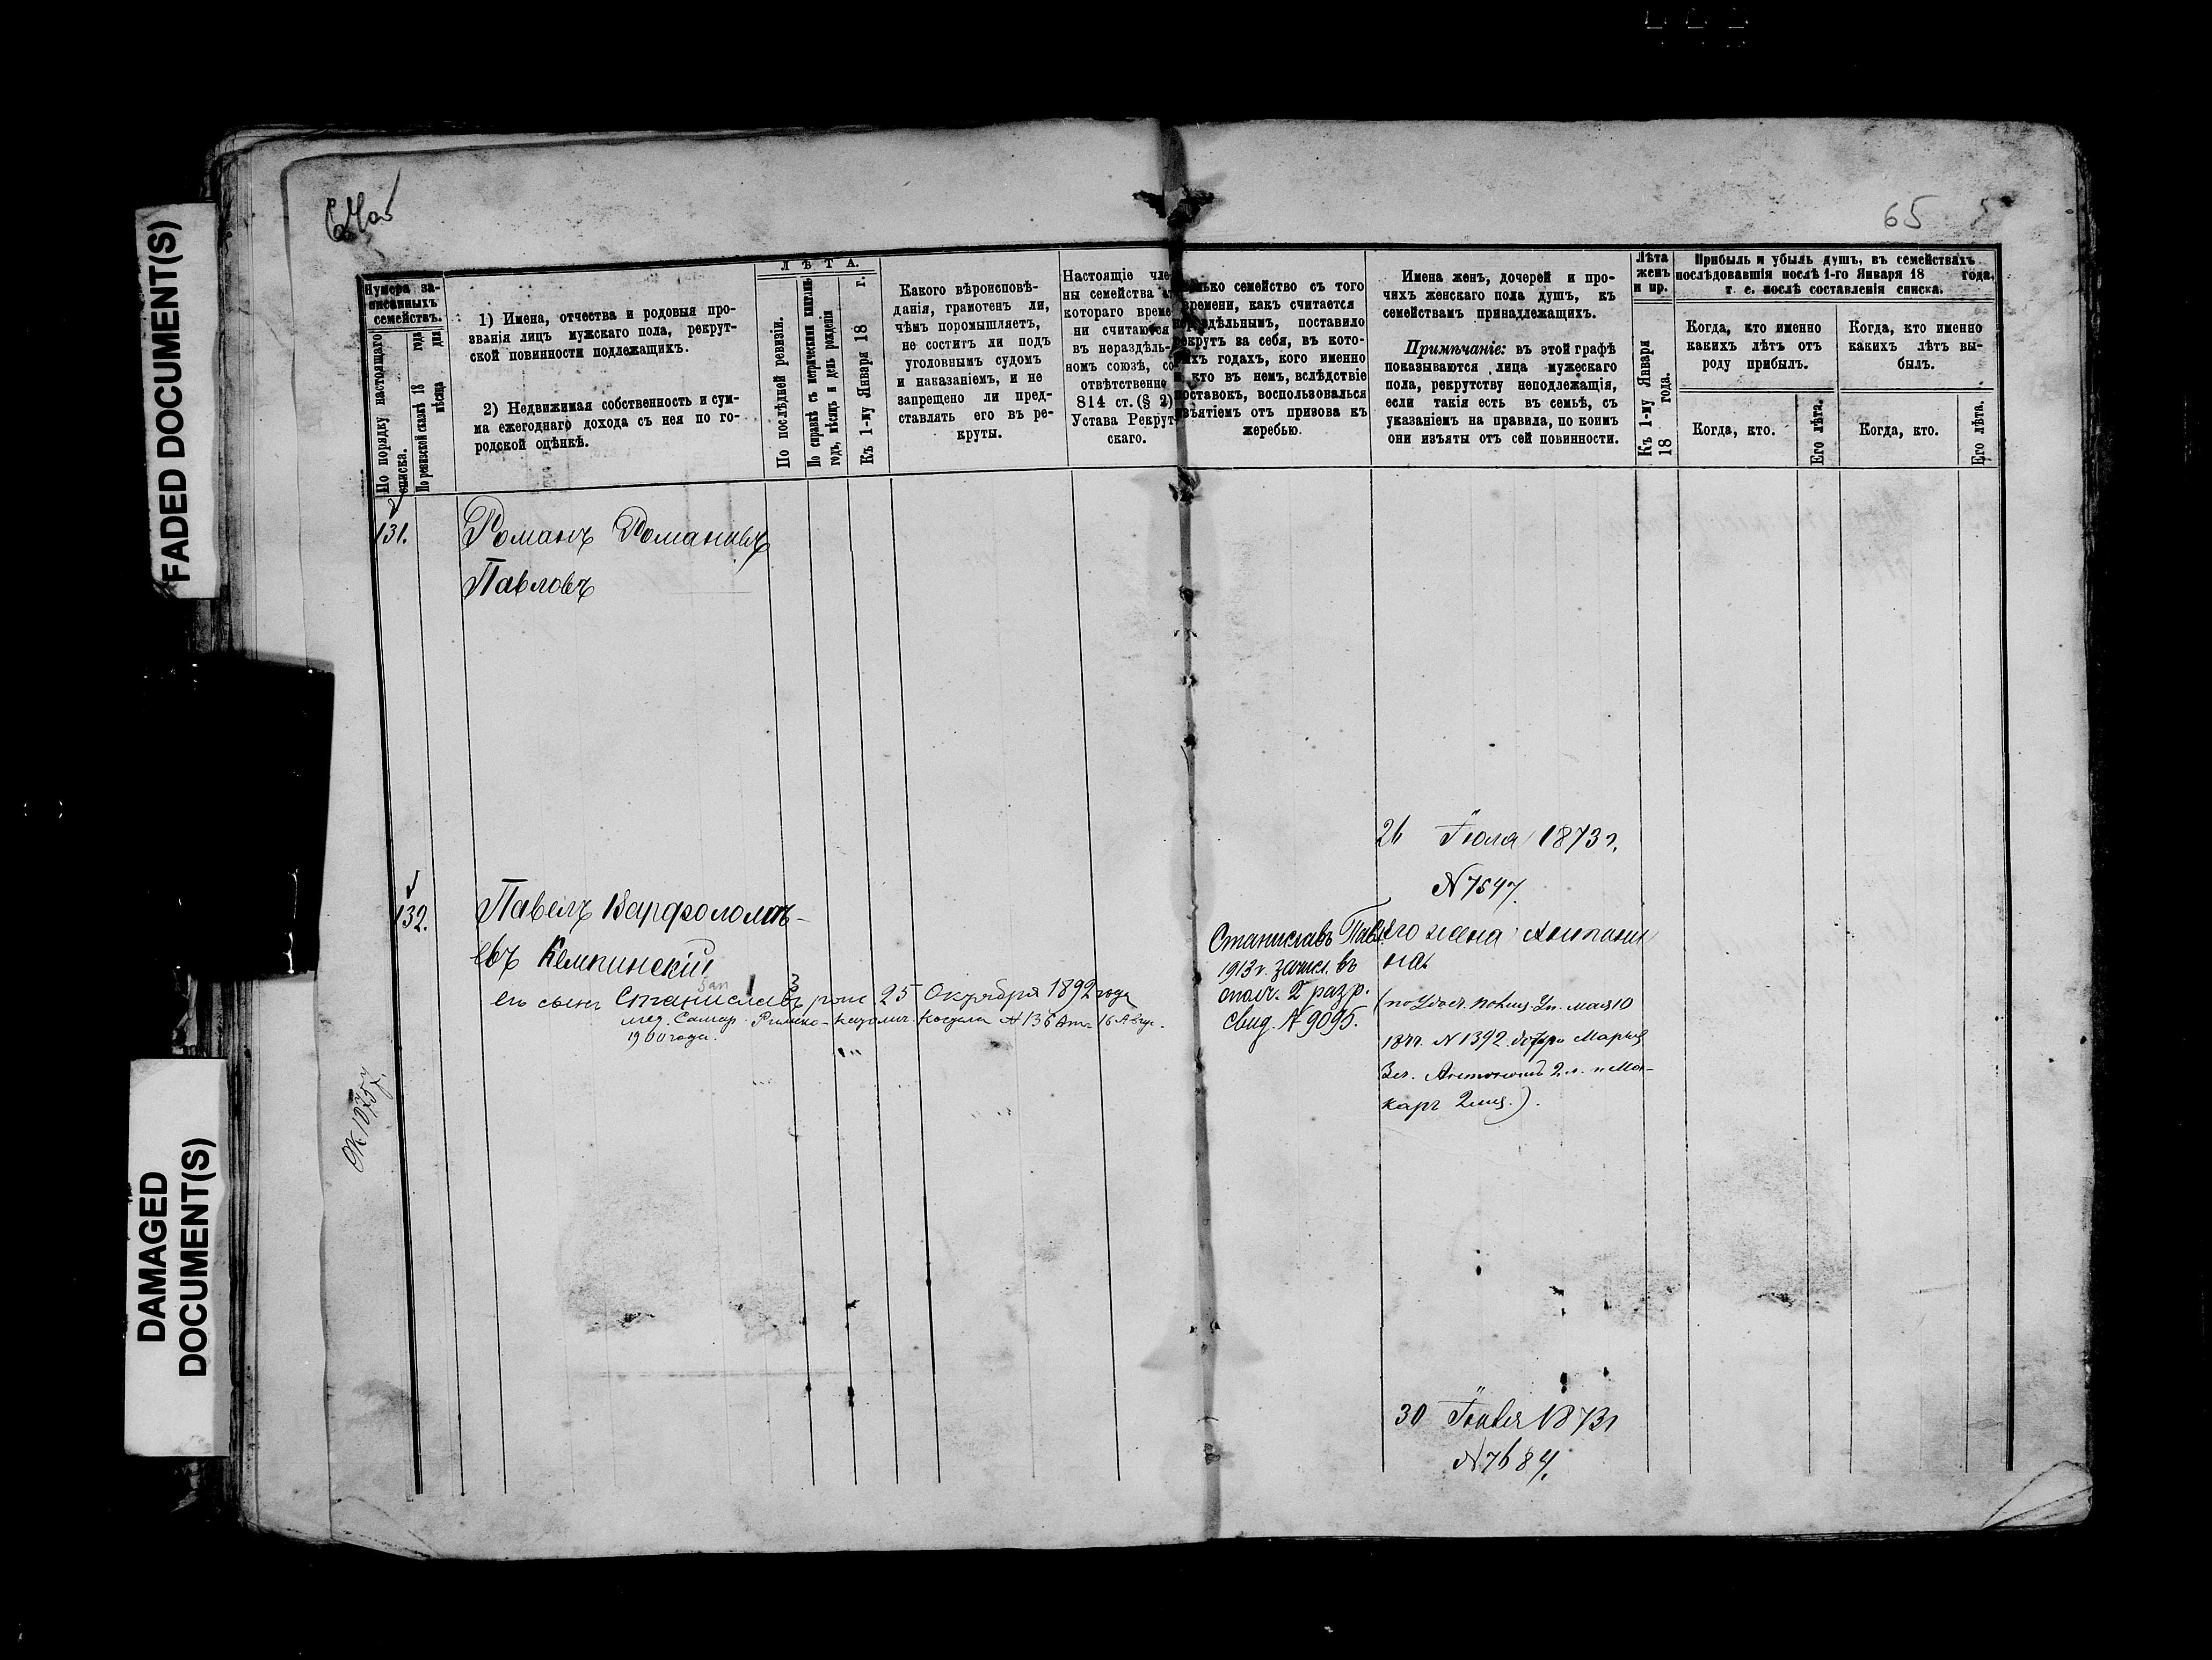 FADED DOCUMENT(S)
DAMAGED
DOCUMENT(S)
65
Нумера за-
писанныхъ
семействъ.
По порядку настоящаго
списка.
По ревизской сказкѣ 18 года
мѣсяца дня
1) Имена, отчества и родовыя про-
званія лицъ мужскаго пола, рекрут-
ской повинности подлежащихъ.
2) Недвижимая собственность и сум-
ма ежегоднаго дохода съ нея по го-
родской оцѣнкѣ.
ЛѢТА.
По послѣдней ревизіи.
По справкѣ съ метрическими книгами
годъ, мѣсяцъ и день рожденія
Къ 1-му Января 18 г.
Какого вѣроисповѣ-
данія, грамотенъ ли,
чѣмъ поромышляетъ,
не соститъ ли подъ
уголовнымъ судомъ
и наказаніемъ, и не
запрещено ли пред-
ставлять его въ ре-
круты.
Настоящіе чле
ны семейства
котораго време
ни считаются
въ нераздѣль-
номъ союзѣ, со
отвѣтственно
814 ст. (§ 2)
Устава Рекрут
скаго.
семейство съ того
времени, какъ считается
поставило
рекрутъ за себя, въ кото-
годахъ, кого именно
и кто въ немъ, вслѣдствіе
поставокъ, воспользовался
изъятіемъ отъ призова къ
жеребью.
Имена женъ, дочерей и про-
чихъ женскаго пола душъ, къ
семействамъ принадлежащихъ.
Примѣчаніе: въ этой графѣ
показываются лица мужескаго
пола, рекрутству неподлежащія,
если такія есть въ семьѣ, съ
указаніемъ на правила, по коимъ
они изъяты отъ сей повинности.
Лѣта
женъ
и пр.
Къ 1-му Января
18 года.
Прибыль и убыль душъ, въ семействахъ
послѣдовавшія послѣ 1-го Января 18 года,
т. е. послѣ составленія списка.
Когда, кто именно
какихъ лѣтъ отъ
роду прибылъ.
Когда, кто именно
какихъ лѣтъ вы-
былъ.
Когда, кто.
Его лѣта.
Когда, кто.
Его лѣта.
131.
Романъ Романовъ
Павловъ
26 Іюля 1873 г.
N 7547.
132.
Павелъ Варфоломѣ-
евъ Кемпинскій
его сынъ Станиславъ рож. 25 Октября 1892 года
мет. Самар. Римско-католич. костела N 136 от 16 Авг.
1900 года.
Станиславъ Павл.
1913 г. зачисл. въ
ополч. 2 разр.
свид. N 9095.
его жена
N 1392 дочери Марья
2 л. и Ма-
каръ 2 мес.).
30 1873 г
N 7684.